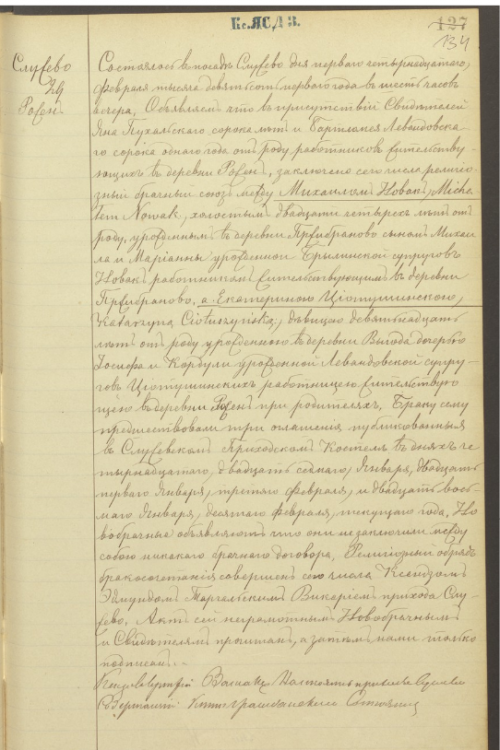 Кс. ЯСД З.
127
134
Служево
29
Росен
Состоялось въ посадѣ Служево дня перваго четырнадцатаго,
февраля тысяча девятьсотъ перваго года въ шесть часовъ
вечера, Объявляемъ что въ присутствіи Свидѣтелей
Яна Пухальскаго сорока лѣтъ и Левандовска-
го сорока одного года отъ роду работниковъ жительству-
ющихъ въ деревни, заключенъ сего числа религіо-
зный брачный союзъ между Михаиломъ Новакъ, Micha-
łem Nowak, холостымъ двадцати четырехъ лѣтъ отъ
роду, урожденнымъ въ деревни Пребраново сыномъ Михаи-
ла и Маріанны урожденной супруговъ
Новакъ работникомъ жительствующимъ въ деревни
Пребраново, а Екатериною Ціотушинскою,
Katarzyna Ciotuszyńską, дѣвицею девятнадцать
лѣтъ отъ роду урожденною въ деревни Вигода дочерью
Іосифа и Кордули урожденной Левандовской супру-
говъ Ціотушинскихъ работницею жительствую
щею въ деревни при родителяхъ, Браку сему
предшествовали три оглашенія публикованныя
въ Служевскомъ Приходскомъ Костелѣ въ дняхъ че
тырнадцатаго, двадцать седьмаго, Января, двадцать
перваго Января, третяго февраля, и двадцать вось-
маго Января, десятаго февраля, текущаго года, Но
вобрачные объявляютъ что они незаключили между
собою никакого брачнаго договора, Религіозный обрядъ
бракосочетанія совершенъ сего числа Ксендзомъ
Викаріемъ прихода Слу-
жево. Актъ сей неграмотнымъ Новобрачнымъ
и Свидѣтелямъ прочитанъ, а затѣмъ нами только
подписанъ.
Ксендзъ Настоятель прихода Служево
Содержащій Книги Гражданскаго Состоянія